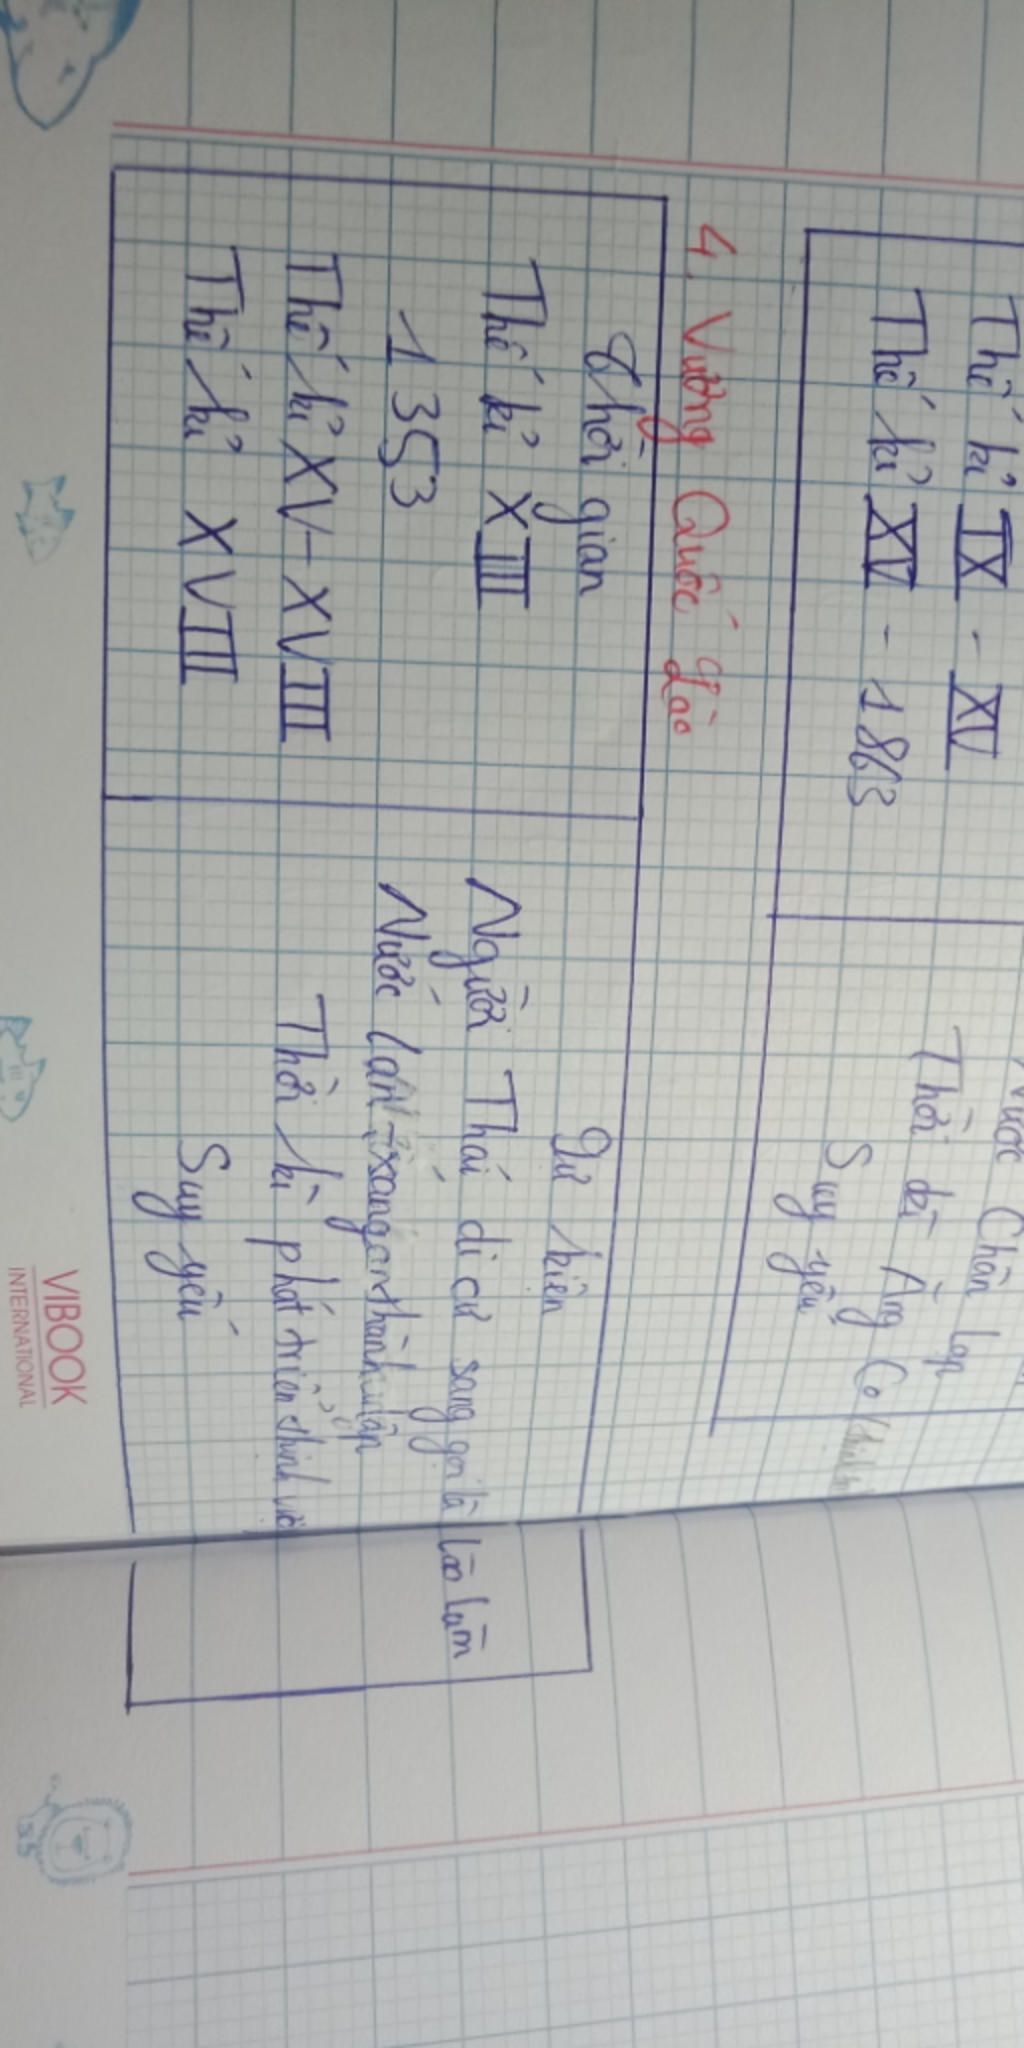 Nước Chân Lạp
Thế kỉ IX - XV Thời kì Ăng Co
Thế kỉ XV - 1863 Suy yếu
4. Vương Quốc Lào
Thời gian Sự kiện
Thế kỉ XIII Người Thái di cư sang gọi là Lào Lùm
1353 Nước Lan-xang thành lập
Thế kỉ XV-XVIII Thời kì phát triển thịnh
Thế kỉ XVIII Suy yếu
VIBOOK
INTERNATIONAL